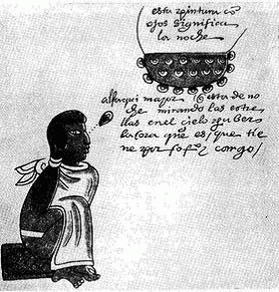 esta pintura cō
ojos significa
la noche
alfaqui mayor q̄ esta de no
che mirando las estre
llas en el cielo y a ber
la ora que es / que tie
ne por ofiº y cargo /